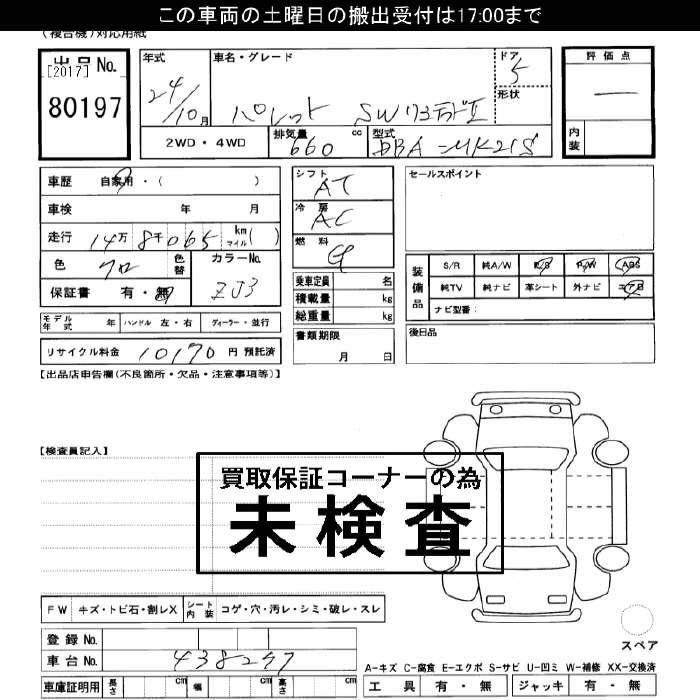 この車両の土曜日の搬出受付は17:00まで
(複合機)対応用紙
出品 No.
[2017]
80197
年式
24/10月
車名・グレード
パレット SW
ドア
5
形状
評価点
内装
2WD・4WD
排気量 660 cc
型式 DBA-MK21S
車歴 自家用・( )
車検 年 月
走行 14万8千065 km マイル( )
色 クロ 色替
カラーNo. ZJ3
保証書 有・無
シフト AT
冷房 AC
燃料 G
乗車定員 名
積載量 kg
総重量 kg
セールスポイント
装備品
S/R 純A/W P/S P/W ABS
純TV 純ナビ 革シート 外ナビ エアB
ナビ型番:
モデル年式 年 ハンドル 左・右 ディーラー・並行
リサイクル料金 10170 円 預託済
書類期限
月 日
後日品
【出品店申告欄(不良箇所・欠品・注意事項等)】
【検査員記入】
買取保証コーナーの為
未検査
FW キズ・トビ石・割レX シート内装 コゲ・穴・汚レ・シミ・破レ・スレ
登録 No.
車台 No. 438247
車庫証明用 長さ cm 幅 cm 高さ cm
スペア
A-キズ C-腐食 E-エクボ S-サビ U-凹ミ W-補修 XX-交換済
工具 有・無 ジャッキ 有・無